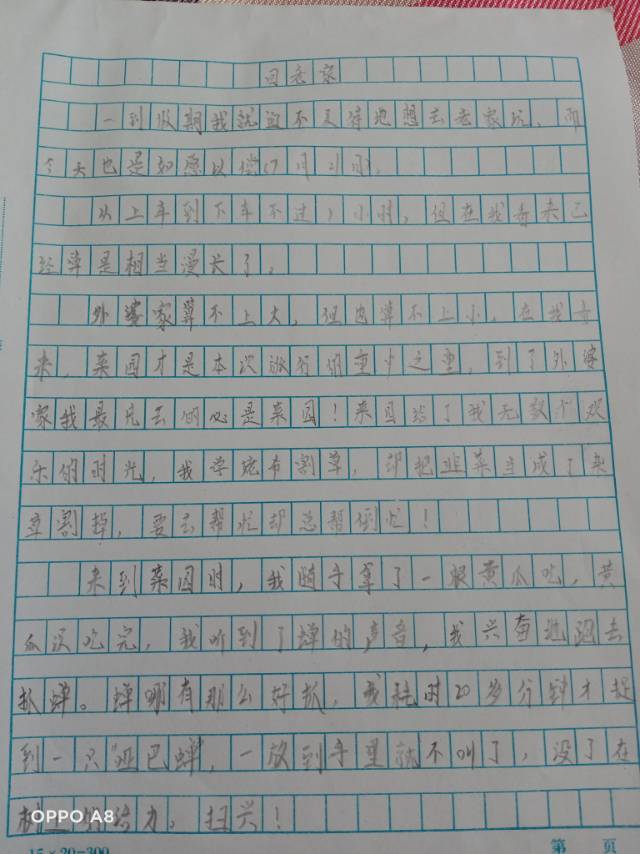 回老家
一到假期我就迫不及待地想去老家玩，而
今天也是如愿以偿(7月21日)。
从上车到下车不过1小时，但在我看来已
经算是相当漫长了。
外婆家算不上大，但也算不上小，在我看
来，菜园才是本次旅行的重中之重，到了外婆
家我最先去的必是菜园！菜园给了我无数个欢
乐的时光，我学 割草，却把韭菜当成了杂
草割掉，要去帮忙却总帮倒忙！
来到菜园时，我随手拿了一根黄瓜吃，黄
瓜没吃完，我听到了蝉的声音，我兴奋地跑去
抓蝉。蝉哪有那么好抓，我耗时20多分钟才捉
到一只"哑巴蝉"，一放到手里就不叫了，没了在
树上 活力。扫兴！
OPPO A8
15×20=300
第 页